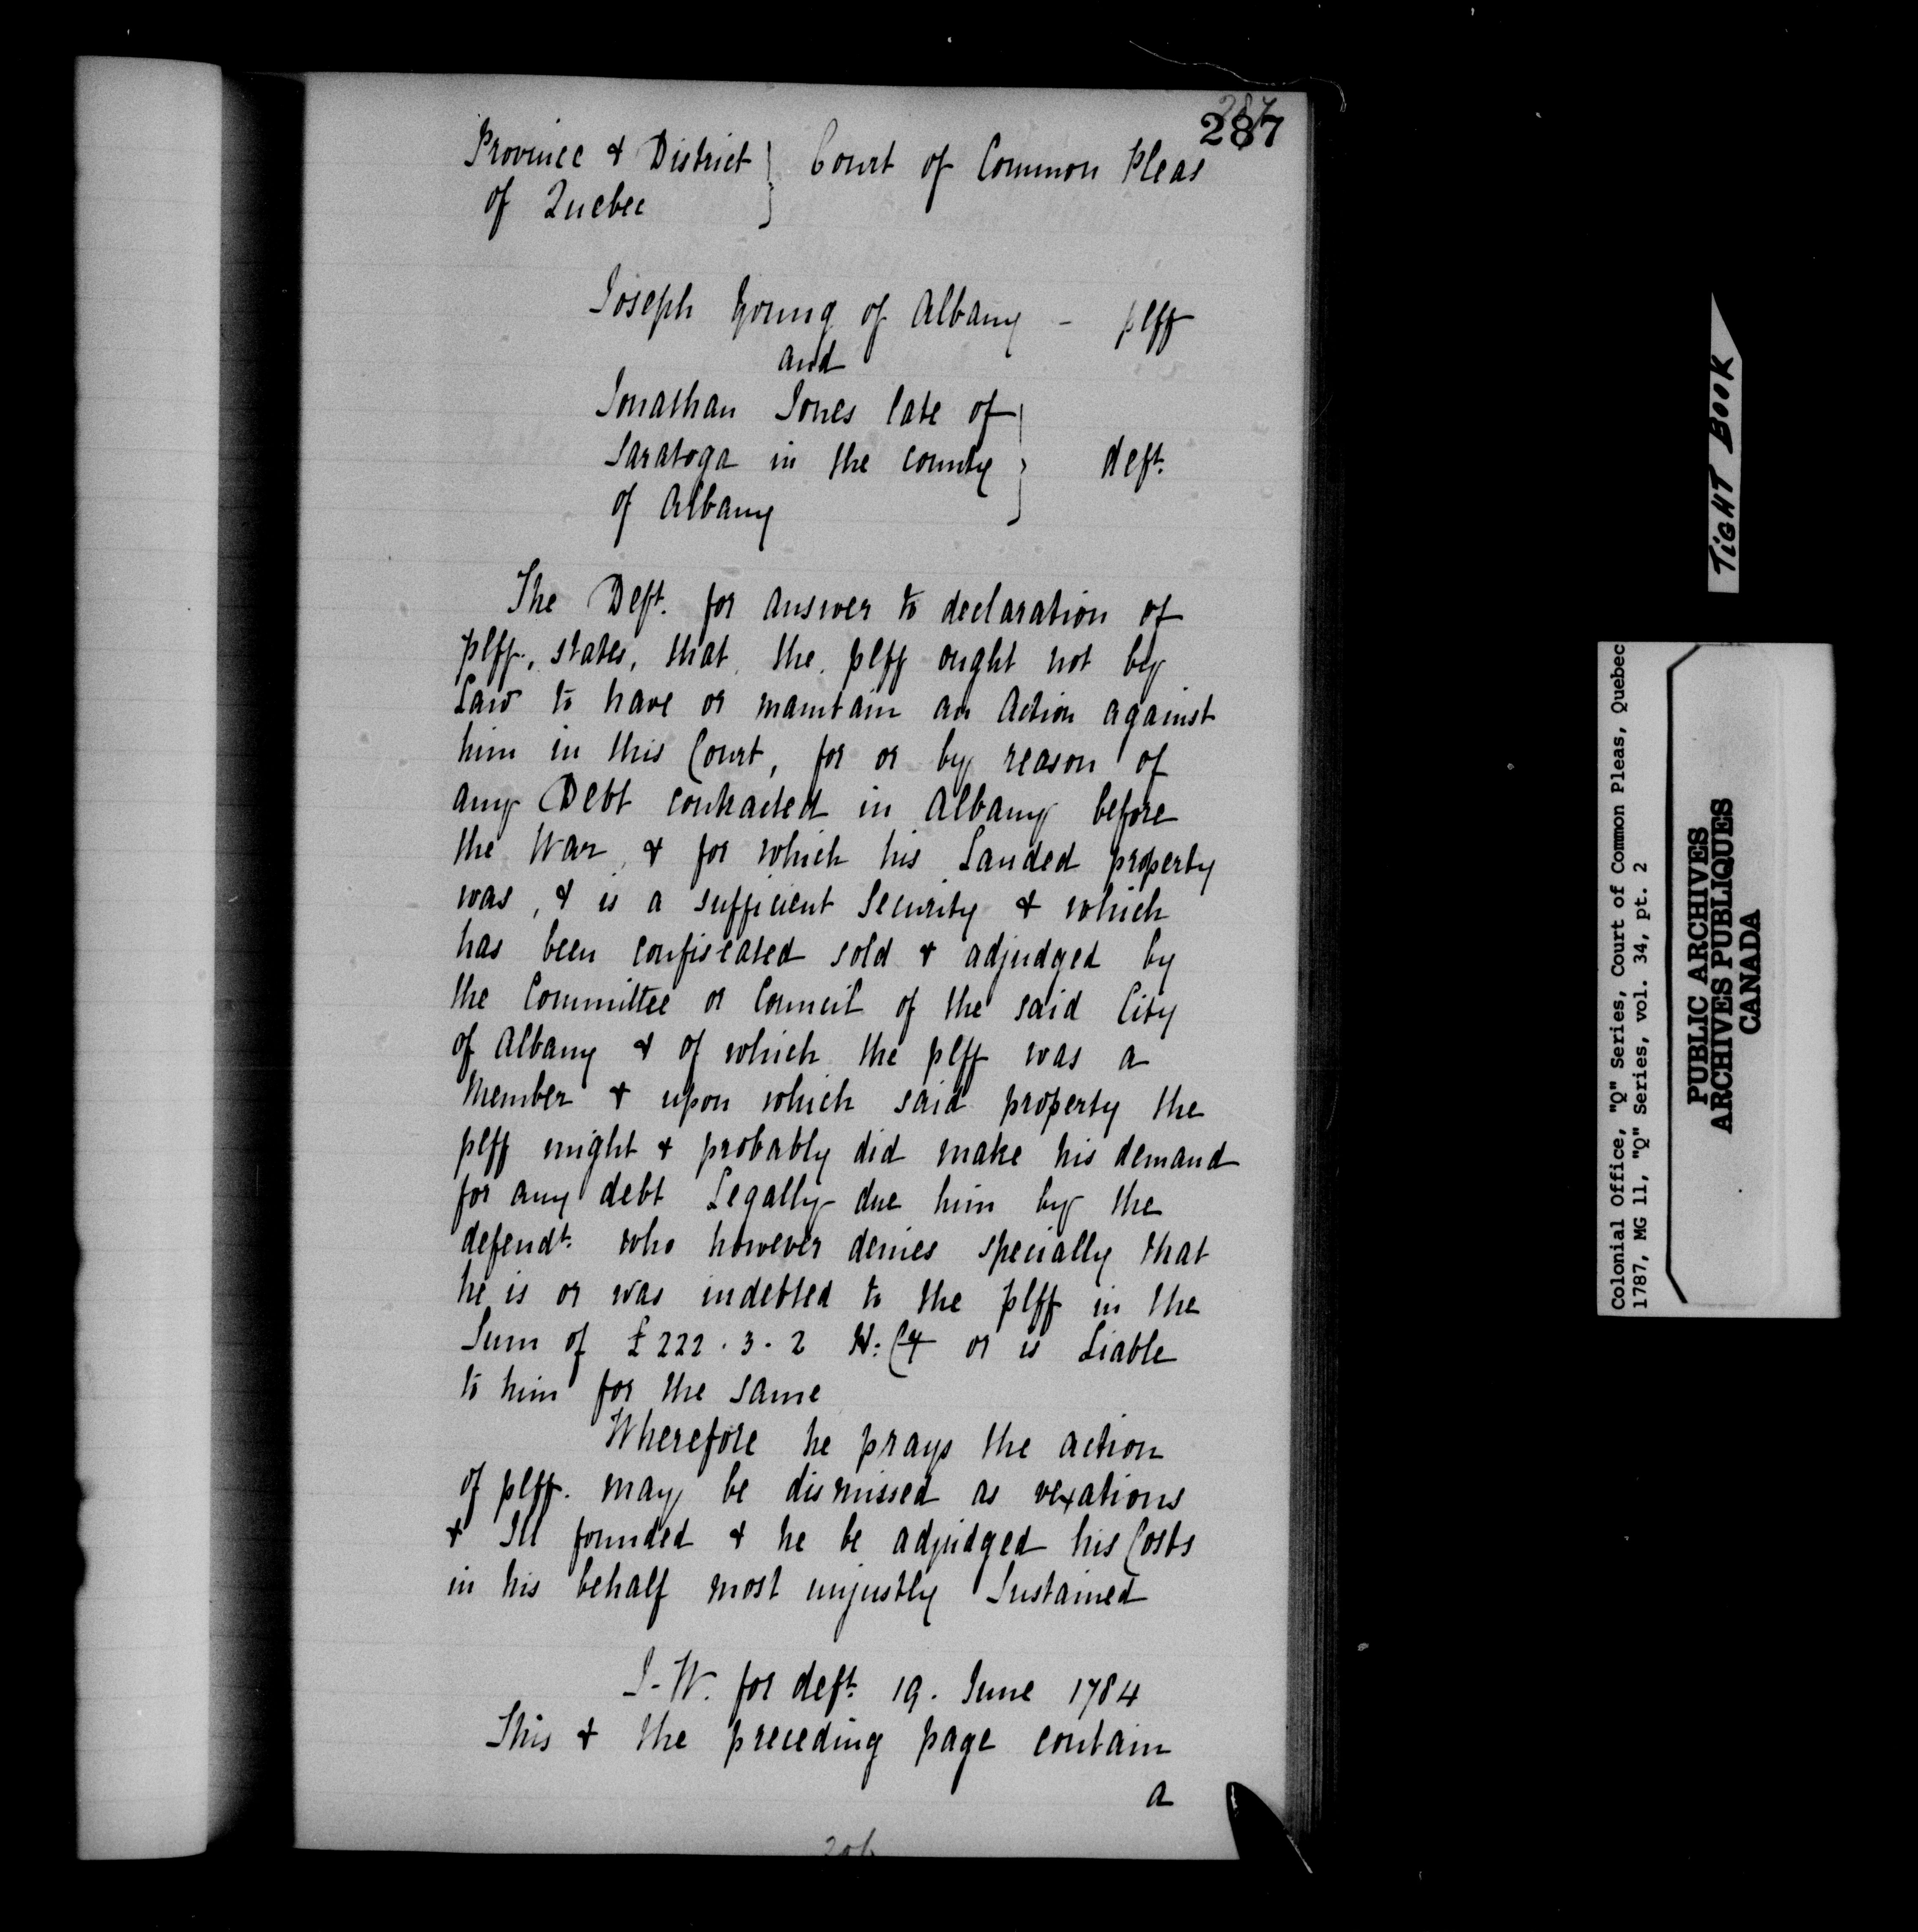 287
287
Province & District } Court of Common Pleas
of Quebec
Joseph Young of Albany - plff
and
Jonathan Jones late of
Saratoga in the County } deft.
of Albany
The Deft. for answer to declaration of
plff., states, that the plff ought not by
Law to have or maintain an Action against
him in this Court, for or by reason of
any Debt contracted in Albany before
the War, & for which his Landed property
was, & is a sufficient Security & which
has been confiscated sold & adjudged by
the Committee or Council of the said City
of Albany & of which the plff was a
Member & upon which said property the
plff might & probably did make his demand
for any debt Legally due him by the
defendt. who however denies specially that
he is or was indebted to the plff in the
Sum of £222.3.2 H: Cy or is Liable
to him for the same
Wherefore he prays the action
of plff. may be dismissed as vexatious
& Ill founded & he be adjudged his Costs
in his behalf most unjustly Sustained
J-W. for deft. 19. June 1784
This & the preceding page contain
a
TIGHT BOOK
Colonial Office, "Q" Series, Court of Common Pleas, Quebec
1787, MG 11, "Q" Series, vol. 34, pt. 2
PUBLIC ARCHIVES
ARCHIVES PUBLIQUES
CANADA